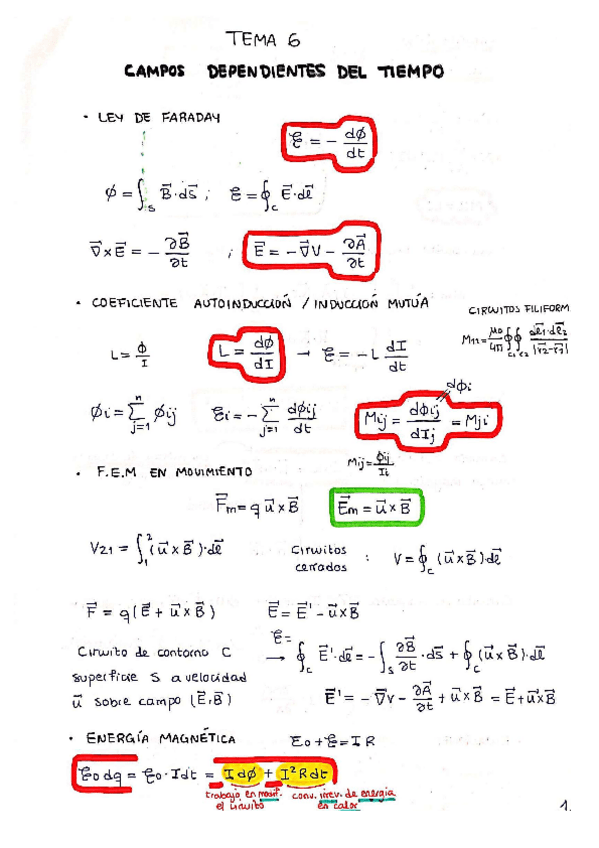 TEMA 6
CAMPOS DEPENDIENTES DEL TIEMPO
· LEY DE FARADAY
ℰ = - dϕ/dt
ϕ = ∫_S B⃗·ds⃗ ; ℰ = ∮_C E⃗·dl⃗
∇⃗×E⃗ = - ∂B⃗/∂t ; E⃗ = -∇⃗V - ∂A⃗/∂t
· COEFICIENTE AUTOINDUCCIÓN / INDUCCIÓN MUTUA
CIRCUITOS FILIFORM
L = ϕ/I   L = dϕ/dI → ℰ = -L dI/dt   M12 = μ0/4π ∮_C1 ∮_C2 dl⃗1·dl⃗2/|r⃗2-r⃗1|
ϕi = Σ_{j=1}^{n} ϕij   ℰi = - Σ_{j=1}^{n} dϕij/dt   Mij = dϕij/dIj = Mji   dϕi
Mij = ϕij/It
· F.E.M EN MOVIMIENTO
F⃗m = q u⃗×B⃗   E⃗m = u⃗×B⃗
V21 = ∫_1^2 (u⃗×B⃗)·dl⃗   Circuitos cerrados : V = ∮_C (u⃗×B⃗)dl⃗
F⃗ = q(E⃗ + u⃗×B⃗)   E⃗ = E⃗' - u⃗×B⃗
Circuito de contorno C → ℰ = ∮_C E⃗'·dl⃗ = -∫_S ∂B⃗/∂t·ds⃗ + ∮_C (u⃗×B⃗)·dl⃗
superficie S a velocidad
u⃗ sobre campo (E⃗,B⃗)   E⃗' = -∇⃗V - ∂A⃗/∂t + u⃗×B⃗ = E⃗+u⃗×B⃗
· ENERGÍA MAGNÉTICA   ℰ0+ℰ=IR
ℰ0 dq = ℰ0·Idt = Idϕ + I²Rdt
trabajo en   conv. irrev. de energía
el circuito   en calor
1.